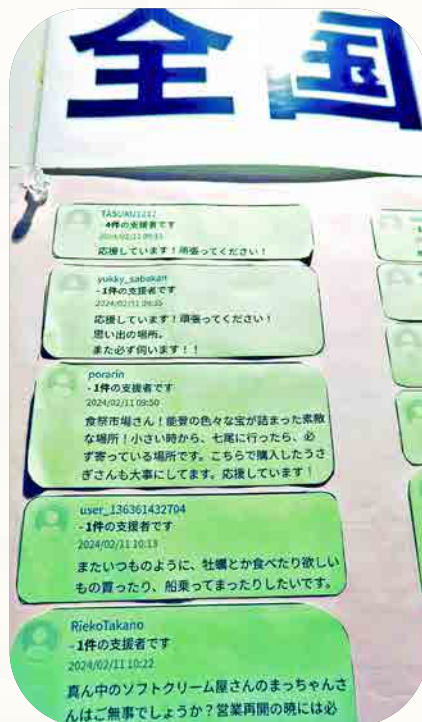 全国
TASUKU1212
- 4件の支援者です
2024/02/11 09:33
応援しています！頑張ってください！
yukky_sabakan
- 1件の支援者です
2024/02/11 09:35
応援しています！頑張ってください！
思い出の場所。
また必ず伺います！！
porarin
- 1件の支援者です
2024/02/11 09:50
食祭市場さん！能登の色々な宝が詰まった素敵
な場所！小さい時から、七尾に行ったら、必
ず寄っている場所です。こちらで購入したうさ
ぎさんも大事にしてます。応援しています！
user_136361432704
- 1件の支援者です
2024/02/11 10:13
またいつものように、牡蠣とか食べたり欲しい
もの買ったり、船乗ってまったりしたいです。
RiekoTakano
- 1件の支援者です
2024/02/11 10:22
真ん中のソフトクリーム屋さんのまっちゃんさ
んはご無事でしょうか？営業再開の暁には必